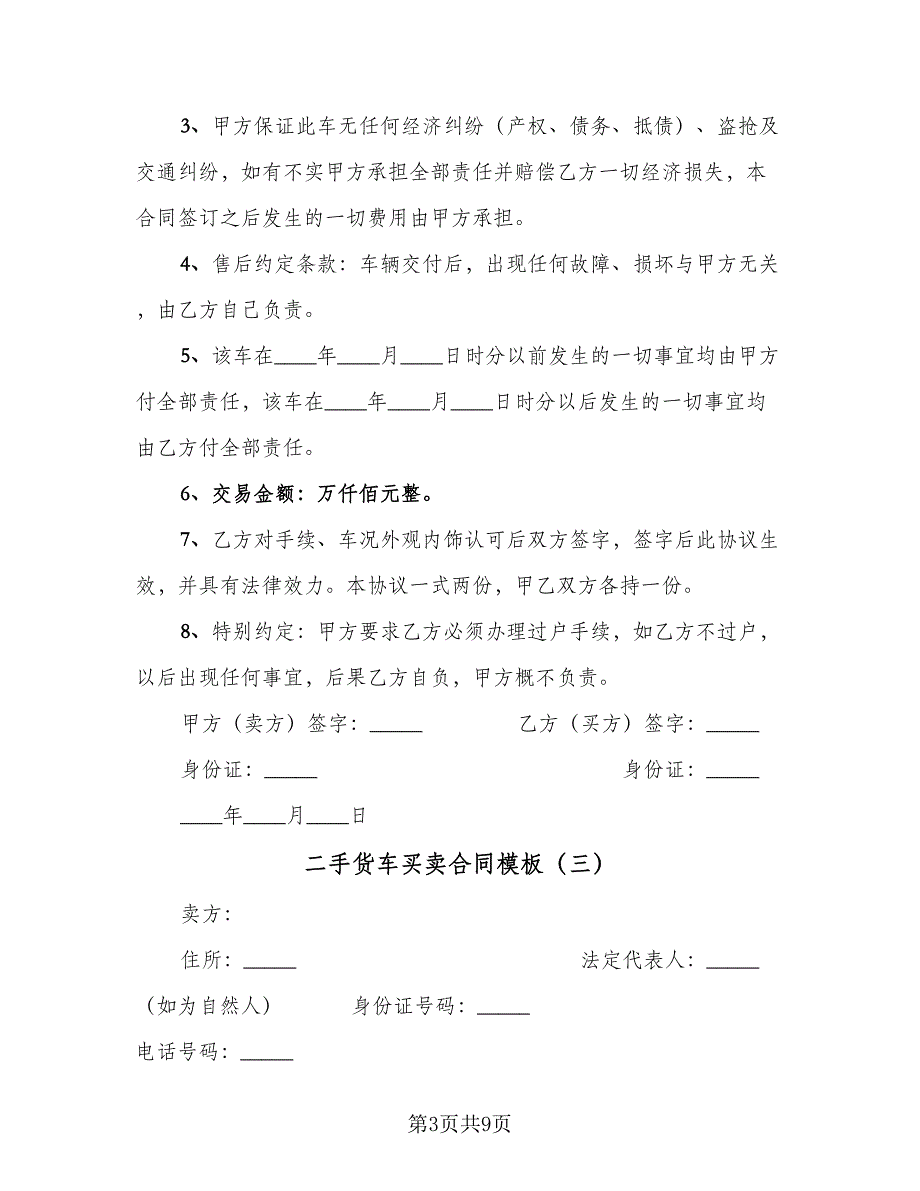 3、甲方保证此车无任何经济纠纷（产权、债务、抵债）、盗抢及
交通纠纷，如有不实甲方承担全部责任并赔偿乙方一切经济损失，本
合同签订之后发生的一切费用由甲方承担。
4、售后约定条款：车辆交付后，出现任何故障、损坏与甲方无关
，由乙方自己负责。
5、该车在____年____月____日时分以前发生的一切事宜均由甲方
付全部责任，该车在____年____月____日时分以后发生的一切事宜均
由乙方付全部责任。
6、交易金额：万仟佰元整。
7、乙方对手续、车况外观内饰认可后双方签字，签字后此协议生
效，并具有法律效力。本协议一式两份，甲乙双方各持一份。
8、特别约定：甲方要求乙方必须办理过户手续，如乙方不过户，
以后出现任何事宜，后果乙方自负，甲方概不负责。
甲方（卖方）签字：_____ 乙方（买方）签字：_____
身份证：_____ 身份证：_____
____年____月____日
二手货车买卖合同模板（三）
卖方：
住所：_____ 法定代表人：_____
（如为自然人） 身份证号码：_____
电话号码：_____
第3页共9页